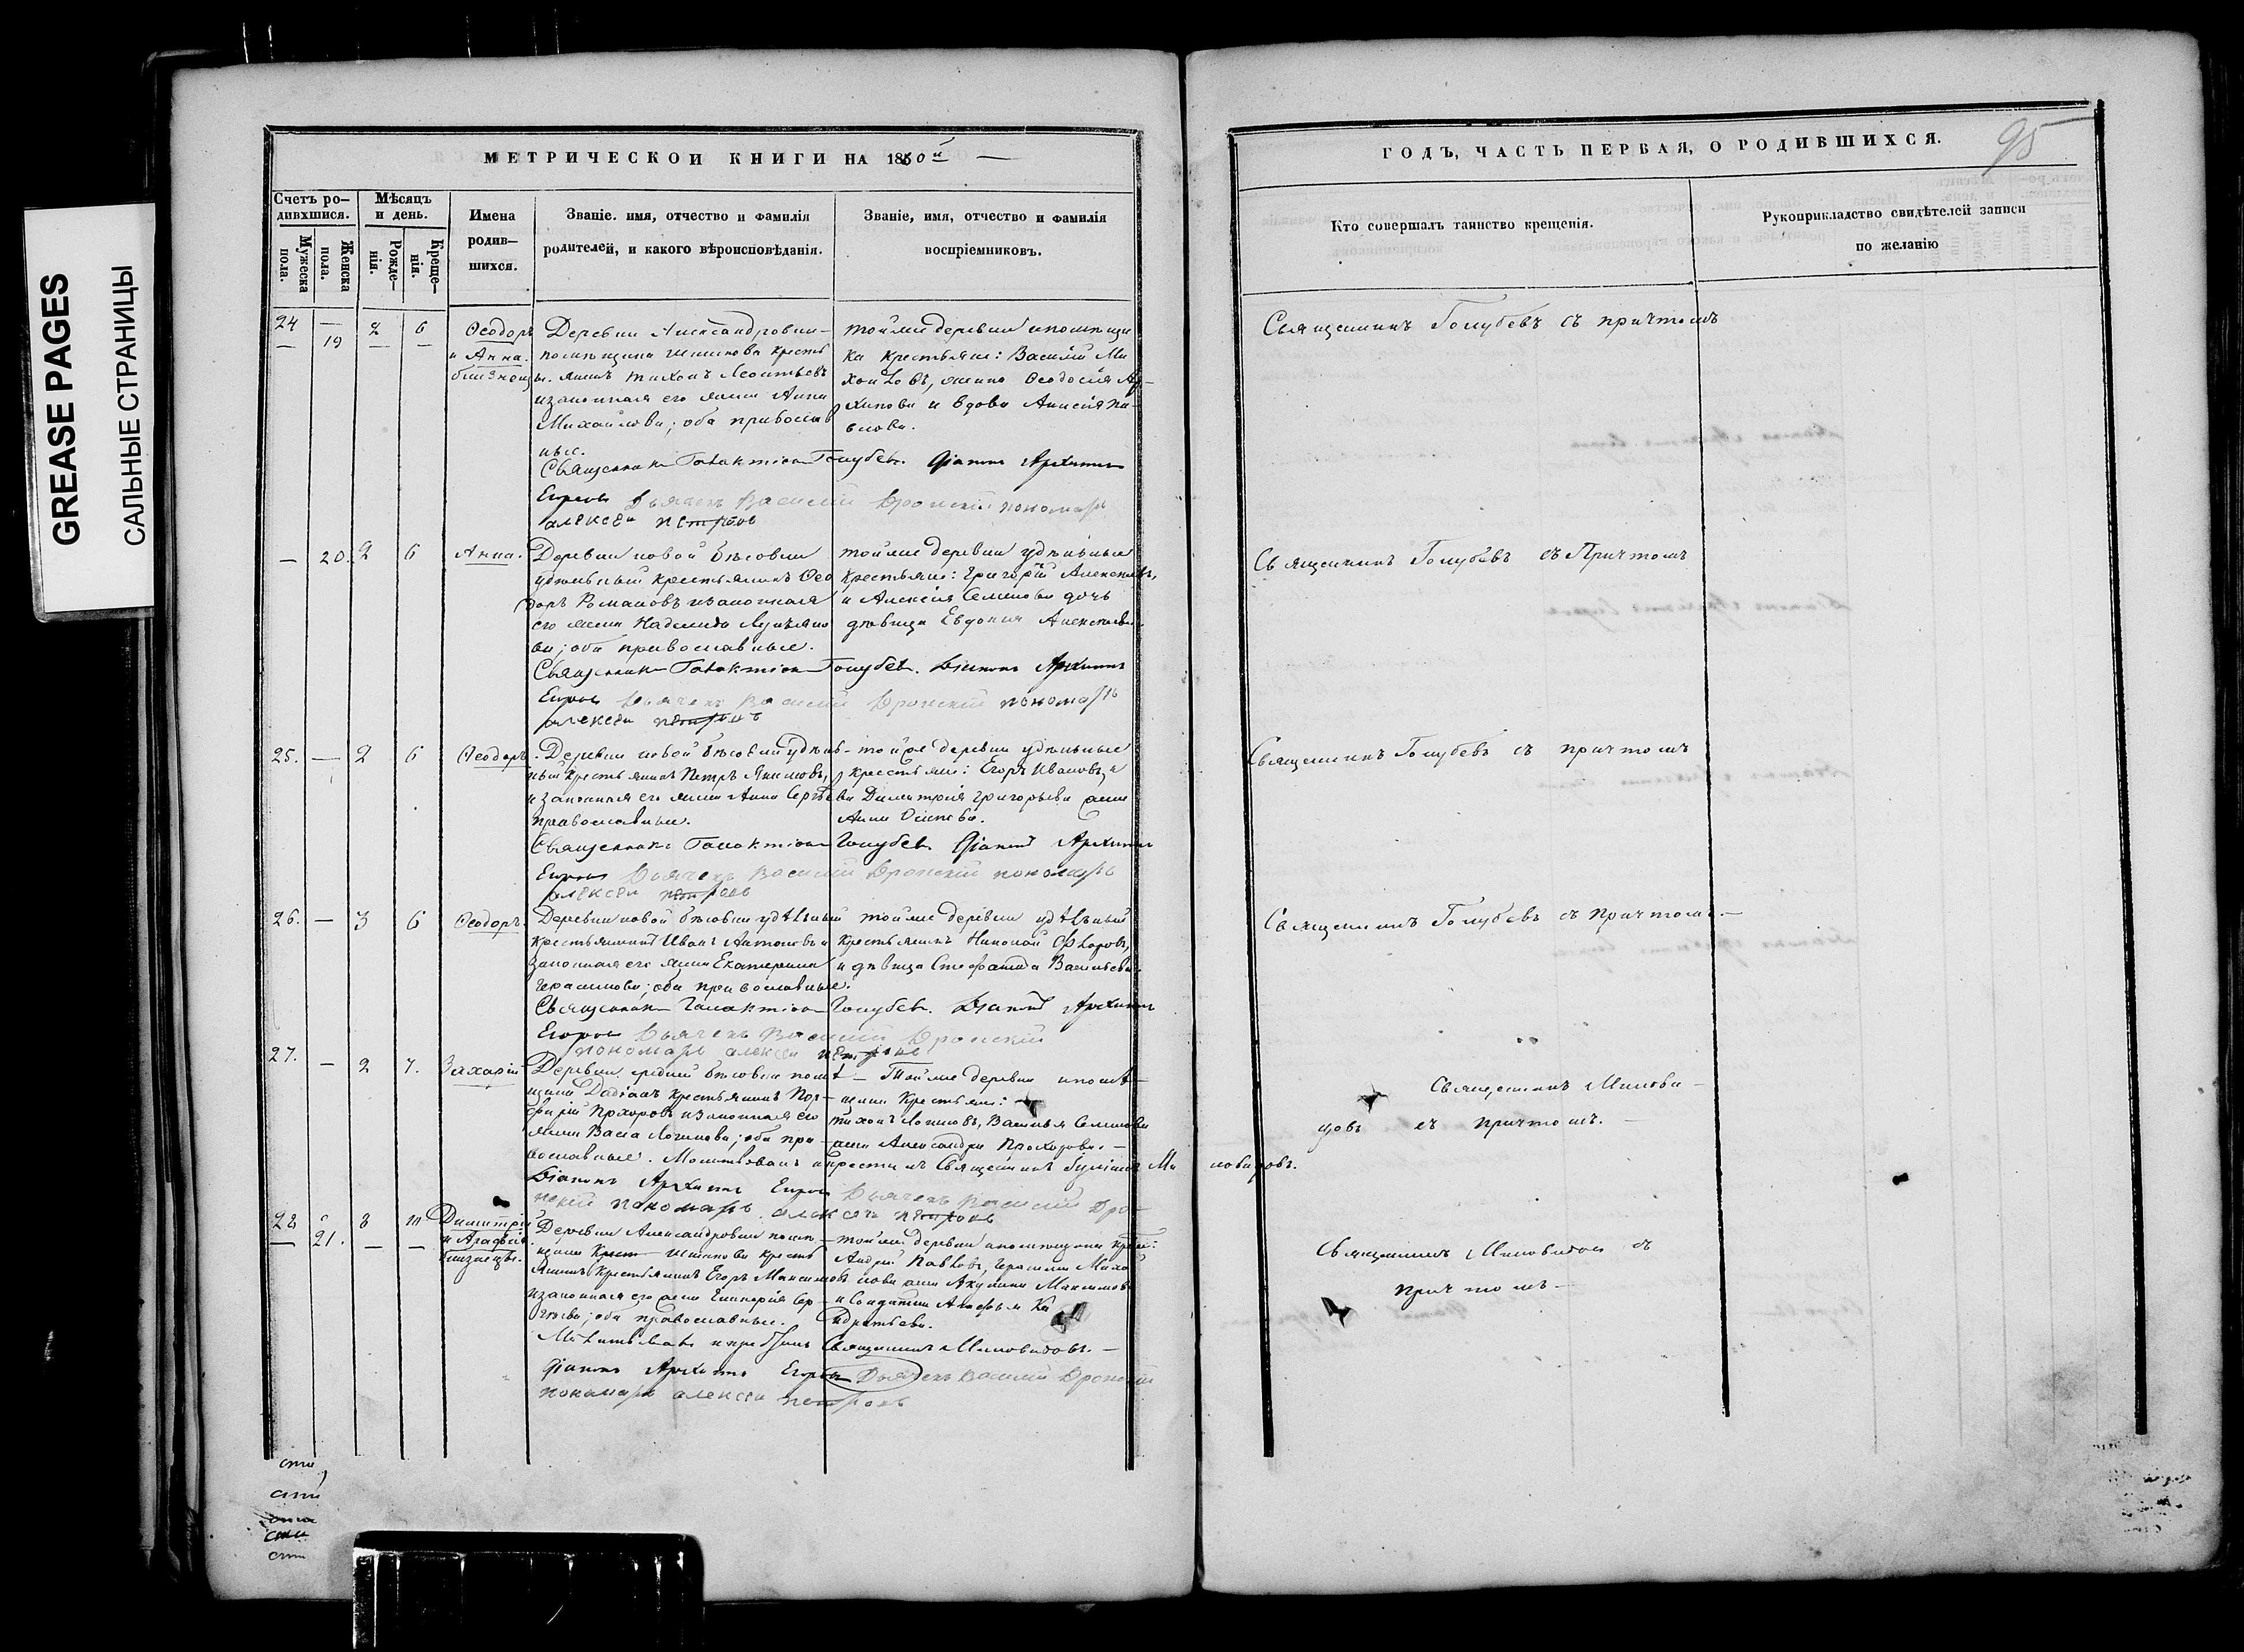 GREASE PAGES
САЛЬНЫЕ СТРАНИЦЫ
МЕТРИЧЕСКОЙ КНИГИ НА 1860й
ГОДЪ, ЧАСТЬ ПЕРВАЯ, О РОДИВШИХСЯ.
95
Счетъ ро-
дивхшися.
Мужеска
пола.
Женска
пола.
Мѣсяцъ
и день.
Рожде-
нія.
Креще-
нія.
Имена
родив-
шихся.
Званіе. имя, отчество и фамилія
родителей, и какого вѣроисповѣданія.
Званіе, имя, отчество и фамилія
воспріемниковъ.
Кто совершалъ таинство крещенія.
Рукоприкладство свидѣтелей записи
по желанію
24 — 19 2 6
Ѳеодоръ
и Анна
близнецы.
Деревни Александровки
помѣщика Шишкова кресть
янинъ Тихонъ Леонтьевъ
и законная его жена Анна
Михайлова; оба православ
ные.
тойже деревни и помѣщи
ка крестьяне: Василій Ми
хайловъ, жена Ѳеодосія Ар-
хипова и вдова Анисія Па-
влова.
Священникъ Голубевъ съ причтомъ
Священникъ Галактіонъ Голубевъ. Діаконъ Архипъ
Егоровъ Дьячекъ Василій Дронскій пономарь
алексѣй петровъ
— 20. 2 6
Анна.
Деревни новой бѣсовки
удѣльный крестьянинъ Ѳео
доръ Романовъ и законная
его жена Надежда Лукьяно
ва; оба православные.
тойже деревни удѣльные
крестьяне: Григорій Алексѣевъ,
и Алексія Семенова дочь
дѣвица Евдокия Алексѣева.
Священникъ Голубевъ съ Причтомъ
Священникъ Галактіонъ Голубевъ. Діаконъ Архипъ
Егоровъ Дьячекъ Василій Дронскій пономарь
алексѣй петровъ
25. — 2 6
Ѳеодоръ.
Деревни новой бѣсовки удѣль-
ный крестьянинъ Петръ Акимовъ,
и законная его жена Анна Сергѣева
православные.
тойже деревни удѣльные
крестьяне: Егоръ Ивановъ, и
Димитрія Григорьева жена
Анна Осипова.
Священникъ Голубевъ съ причтомъ
Священникъ Галактіонъ Голубевъ. Діаконъ Архипъ
Егоровъ Дьячекъ Василій Дронскій пономарь
алексѣй петровъ
26. — 3 6
Ѳеодоръ.
Деревни новой бѣсовки удѣльный
крестьянинъ Иванъ Антоновъ и
законная его жена Екатерина
Герасимова; оба православные.
тойже деревни удѣльный
крестьянинъ Николай Ѳедоровъ,
и дѣвица Стефанида Васильева.
Священникъ Голубевъ съ причтомъ.—
Священникъ Галактіонъ Голубевъ. Діаконъ Архипъ
Егоровъ Дьячекъ Василій Дронскій
пономарь алексѣй петровъ
27. — 2 7.
Захарій
Деревни средней бѣсовки помѣ-
щика Дадіанъ крестьянинъ Пор-
фирій Прохоровъ и законная его
жена Васса Логинова; оба пра-
вославные.
Тойже деревни и помѣ-
щика крестьяне:
Тихонъ Логиновъ, Василья Семенова
жена Александра Прохорова.—
Священникъ Милови-
довъ съ причтомъ.—
Молитвовалъ и крестилъ Священникъ Миловидовъ.
Діаконъ Архипъ Егоровъ Дьячекъ Василій Дро-
нскій пономарь алексѣй петровъ
28 21. 8 10
Димитрій
и Агафья
близнецы.
Деревни Александровки помѣ-
щика Шишкова кресть
янинъ Егоръ Максимовъ
и законная его жена Гликерія Сер
гѣева; оба православные.
тойже деревни и помѣщика крест:
Андрей Павловъ, Герасима Михай
лова жена Акулина Максимова
и Солдатка Агафья Ка
ндратьева.
Священникъ Миловидовъ съ
причтомъ—
Молитвовалъ и крестилъ Священникъ Миловидовъ.—
Діаконъ Архипъ Егоровъ Дьячекъ Василій Дронскій
пономарь алексѣй петровъ